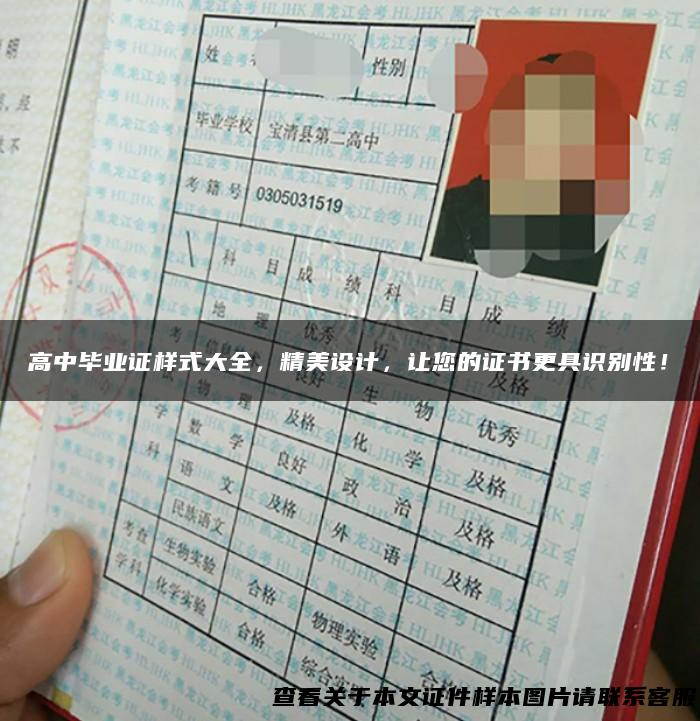 姓
性别
毕业学校 宝清县第二高中
考籍号 0305031519
科目 成绩 科目 成绩
地理 优秀
高中毕业证样式大全，精美设计，让您的证书更具识别性！
良好 生物 优秀
物理 及格 化学 及格
数学 良好 政治 及格
语文 及格 外语 及格
民族语文
考查学科 生物实验 合格 物理实验 合格
化学实验 合格 综合实
查看关于本文证件样本图片请联系客服